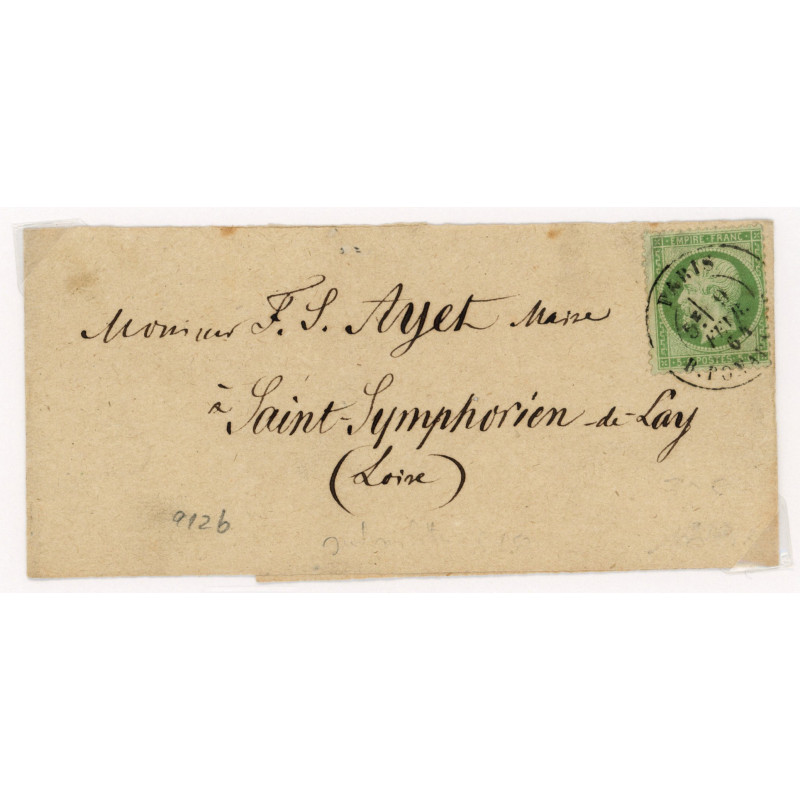 EMPIRE FRANC
PARIS
9
FEVR.
64
POSTES
Monsieur F. S. Ayet Maire
à Saint-Symphorien-de-Lay
(Loire)
912b